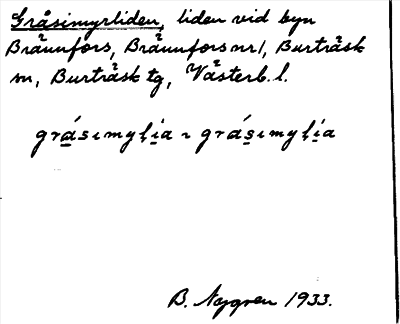 Gråsimyrliden, liden vid byn
Brännfors, Brännfors nr 1, Burträsk
sn, Burträsk tg, Västerb. l.
grása̱ımyl̥i̱a ~ grás̱ımyl̥i̱a
B. Nygren 1933.